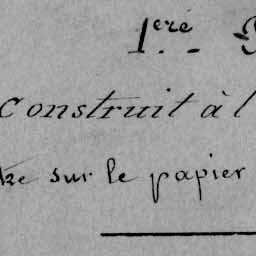 1ère
Construit à l
sur le papier